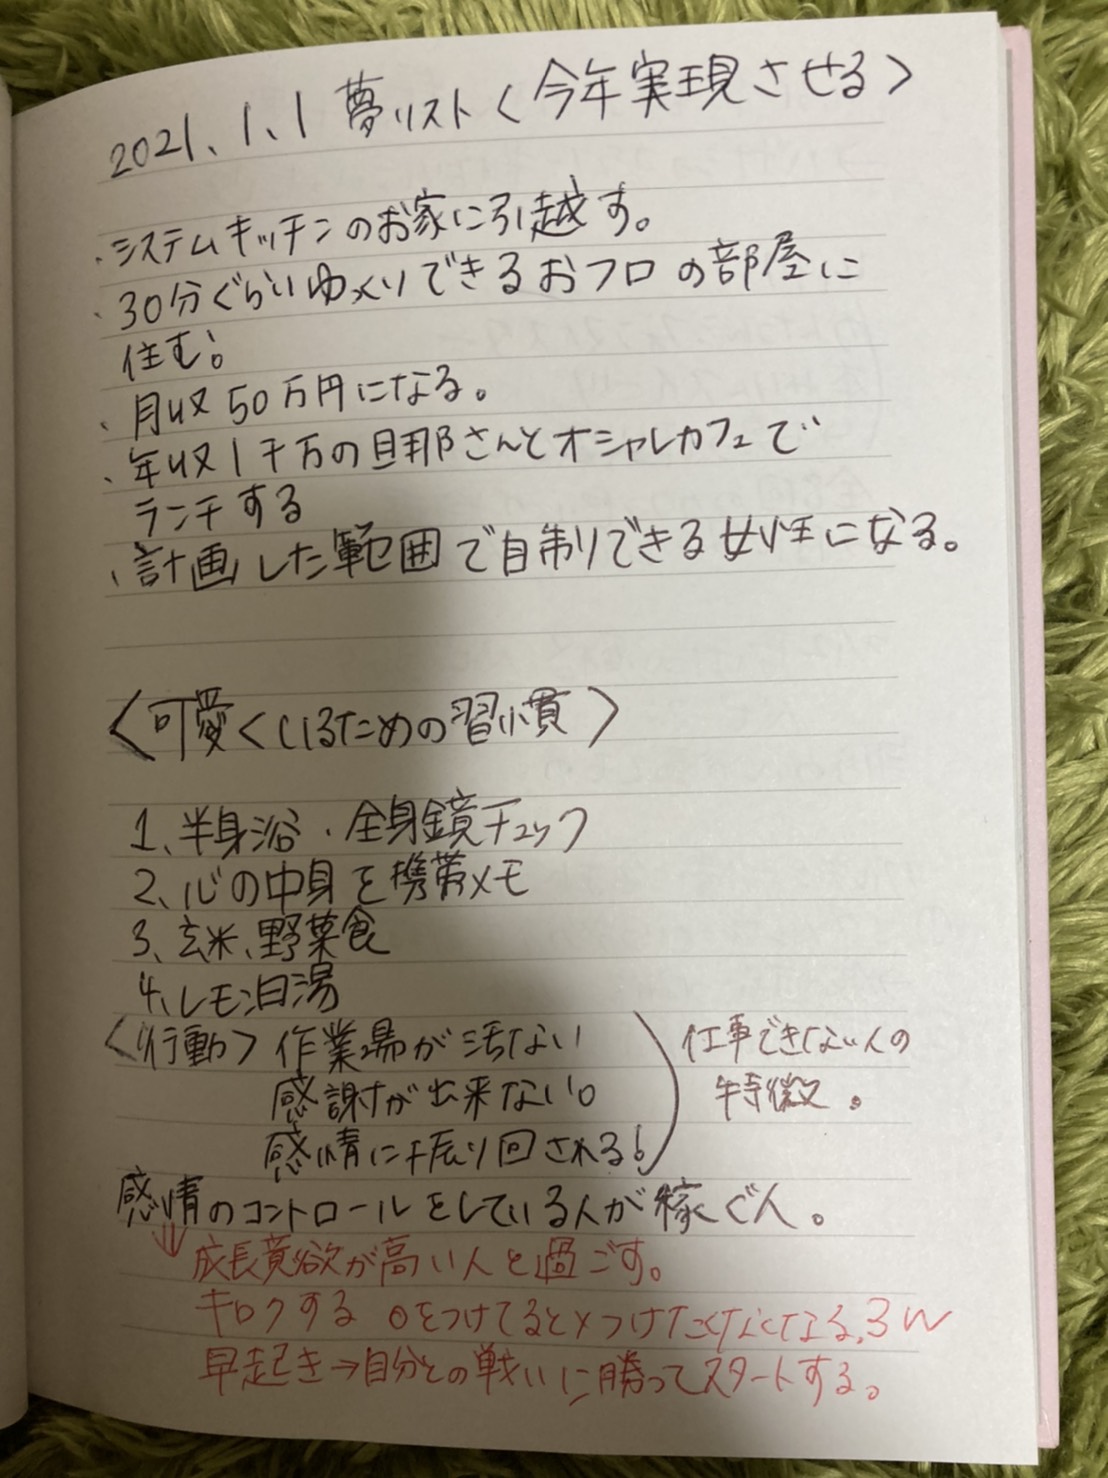 2021、1、1 夢リスト〈今年実現させる〉
・システムキッチンのお家に引越す。
・30分ぐらいゆっくりできるおフロの部屋に
住む。
・月収50万円になる。
・年収1千万の旦那さんとオシャレカフェで
ランチする
・計画した範囲で自制できる女性になる。
〈可愛くいるための習慣〉
1、半身浴・全身鏡チェック
2、心の中身を携帯メモ
3、玄米、野菜食
4、レモン白湯
〈行動〉作業場が汚ない
感謝が出来ない。
感情に振り回される。
仕事できない人の
特徴。
感情のコントロールをしている人が稼ぐ人。
⇓成長意欲が高い人と過ごす。
キロクする ○をつけてると×つけたくなくなる。3W
早起き→自分との戦いに勝ってスタートする。